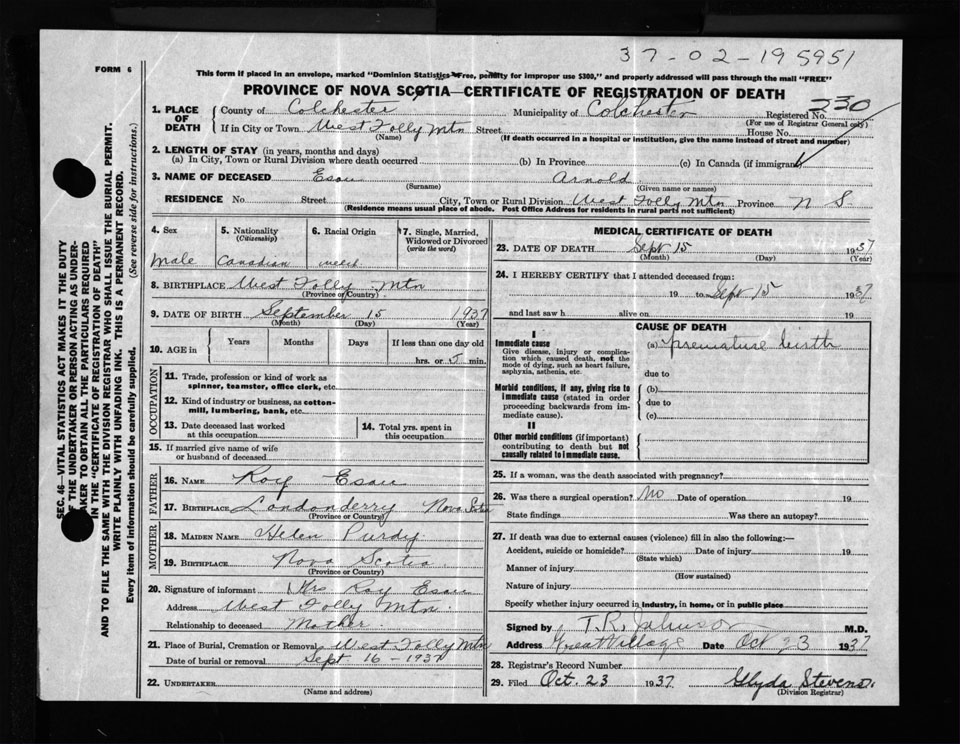 37-02-195951
FORM 6
This form if placed in an envelope, marked "Dominion Statistics—Free, penalty for improper use $300," and properly addressed will pass through the mail "FREE"
PROVINCE OF NOVA SCOTIA—CERTIFICATE OF REGISTRATION OF DEATH
1. PLACE OF DEATH { County of Colchester Municipality of Colchester Registered No. 230
(For use of Registrar General only)
If in City or Town West Folly Mtn Street House No.
(Name) (If death occurred in a hospital or institution, give the name instead of street and number)
2. LENGTH OF STAY (in years, months and days)
(a) In City, Town or Rural Division where death occurred (b) In Province (c) In Canada (if immigrant)
3. NAME OF DECEASED Esau Arnold
(Surname) (Given name or names)
RESIDENCE No. Street City, Town or Rural Division West Folly Mtn Province N S
(Residence means usual place of abode. Post Office Address for residents in rural parts not sufficient)
4. Sex 5. Nationality 6. Racial Origin 7. Single, Married, Widowed or Divorced
(Citizenship) (write the word)
Male Canadian
8. BIRTHPLACE West Folly Mtn
(Province or Country)
9. DATE OF BIRTH September 15 1937
(Month) (Day) (Year)
10. AGE in { Years Months Days If less than one day old
hrs. or 5 min.
OCCUPATION
11. Trade, profession or kind of work as
spinner, teamster, office clerk, etc.
12. Kind of industry or business, as cotton-
mill, lumbering, bank, etc.
13. Date deceased last worked at this occupation 14. Total yrs. spent in this occupation
15. If married give name of wife
or husband of deceased
FATHER
16. NAME Roy Esau
17. BIRTHPLACE Londonderry Nova Scotia
(Province or Country)
MOTHER
18. MAIDEN NAME Helen Purdy
19. BIRTHPLACE Nova Scotia
(Province or Country)
20. Signature of informant Mrs Roy Esau
Address West Folly Mtn.
Relationship to deceased Mother
21. Place of Burial, Cremation or Removal West Folly Mtn
Date of burial or removal Sept 16 - 1937
22. UNDERTAKER
(Name and address)
MEDICAL CERTIFICATE OF DEATH
23. DATE OF DEATH Sept 15 1937
(Month) (Day) (Year)
24. I HEREBY CERTIFY that I attended deceased from:
19 to Sept 15 1937
and last saw h alive on 19
CAUSE OF DEATH
I
Immediate cause (a) premature birth
Give disease, injury or complica-
tion which caused death, not the
mode of dying, such as heart failure,
asphyxia, asthenia, etc.
due to
Morbid conditions, if any, giving rise to (b)
immediate cause (stated in order
proceeding backwards from im-
mediate cause).
due to
(c)
II
Other morbid conditions (if important)
contributing to death but not
causally related to immediate cause.
25. If a woman, was the death associated with pregnancy?
26. Was there a surgical operation? No Date of operation 19
State findings Was there an autopsy?
27. If death was due to external causes (violence) fill in also the following:—
Accident, suicide or homicide? Date of injury 19
(State which)
Manner of injury
(How sustained)
Nature of injury
Specify whether injury occurred in industry, in home, or in public place
Signed by T.R. Johnson M.D.
Address Great Village Date Oct 23 1937
28. Registrar's Record Number
29. Filed Oct. 23 1937 Glyda Stevens
(Division Registrar)
SEC. 46—VITAL STATISTICS ACT MAKES IT THE DUTY
OF THE UNDERTAKER OR PERSON ACTING AS UNDER-
TAKER TO OBTAIN ALL THE PARTICULARS REQUIRED
IN THE "CERTIFICATE OF REGISTRATION OF DEATH"
AND TO FILE THE SAME WITH THE DIVISION REGISTRAR WHO SHALL ISSUE THE BURIAL PERMIT.
WRITE PLAINLY WITH UNFADING INK. THIS IS A PERMANENT RECORD.
Every item of information should be carefully supplied. (See reverse side for instructions.)